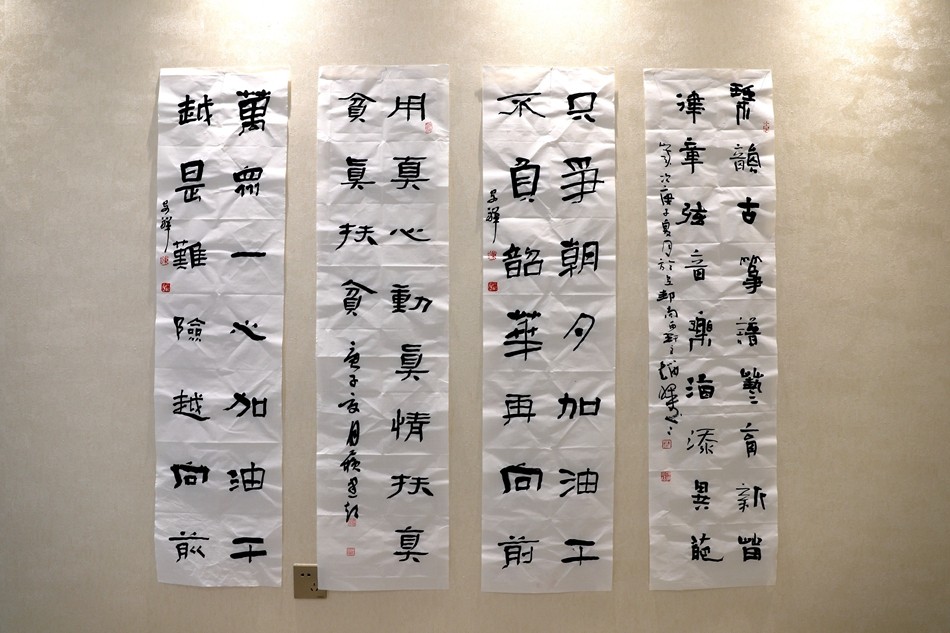 韻古箏譜藝育新
律章弦音樂海添異葩
只爭朝夕加油干
不負韶華再向前
用真心動真情扶真
貧真扶貧
庚子夏月
萬眾一心加油干
越是難險越向前